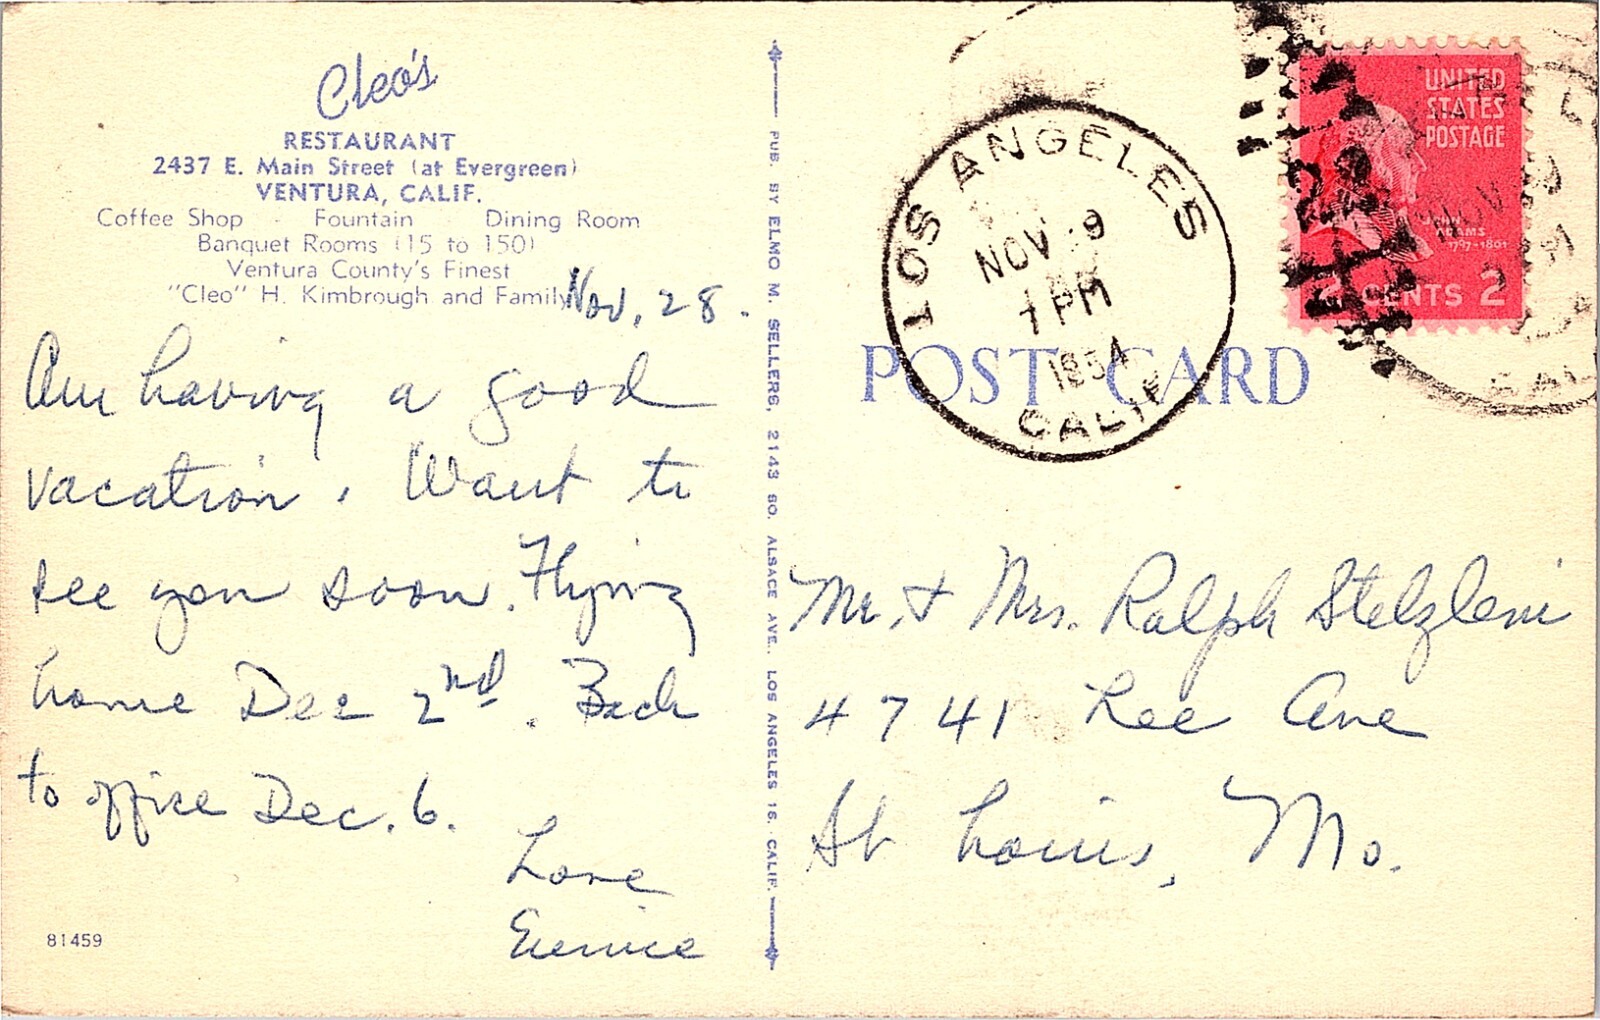 Cleo's
RESTAURANT
2437 E. Main Street (at Evergreen)
VENTURA, CALIF.
Coffee Shop - Fountain - Dining Room
Banquet Rooms (15 to 150)
Ventura County's Finest
"Cleo" H. Kimbrough and Family
Nov, 28.
Am having a good
vacation. Want to
see you soon. Flying
home Dec 2nd. Back
to office Dec. 6.
Love
Eunice
81459
PUB. BY ELMO M. SELLERS, 2143 SO. ALSACE AVE., LOS ANGELES 16, CALIF.
POST CARD
LOS ANGELES
NOV 9
1 PM
1954
CALIF
UNITED
STATES
POSTAGE
ADAMS
1797-1801
CENTS 2
NOV
Mr. & Mrs. Ralph Stelzleni
4741 Lee Ave
St Louis, Mo.